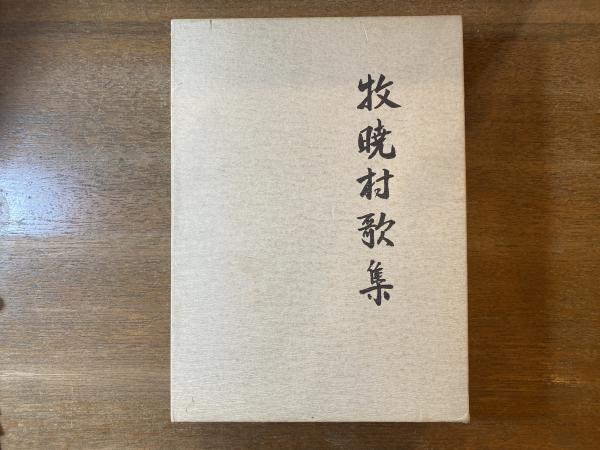 牧暁村歌集